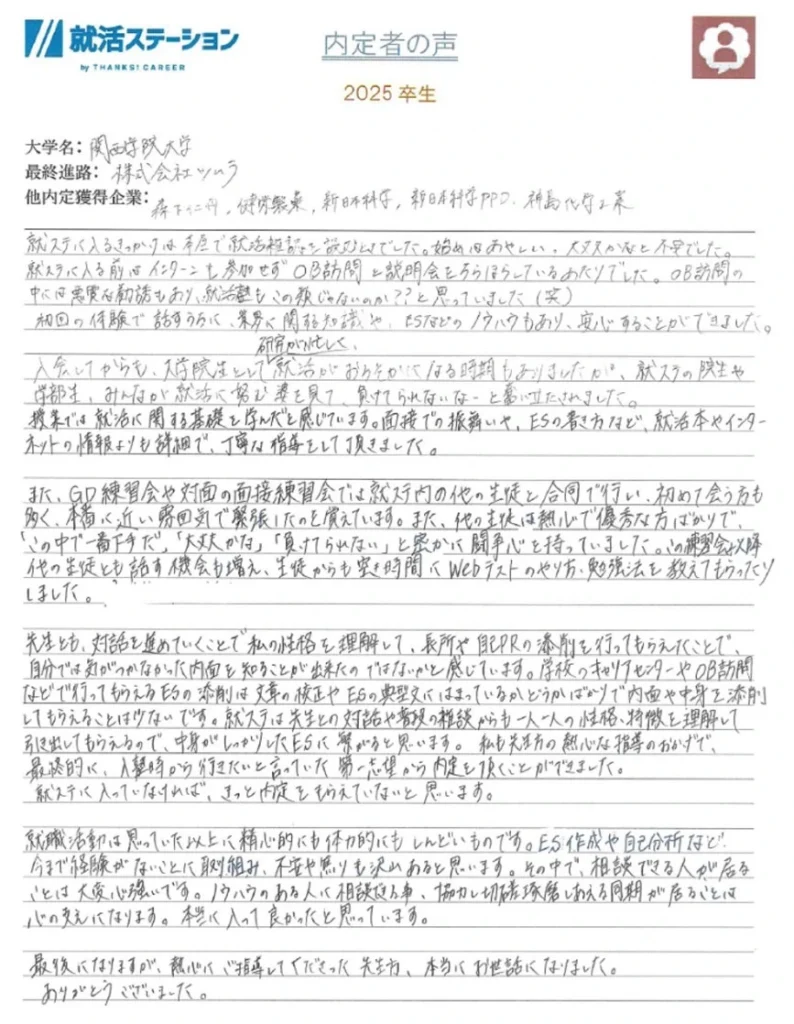 就活ステーション
by THANKS! CAREER
内定者の声
2025 卒生
大学名： 関西学院大学
最終進路： 株式会社ツムラ
他内定獲得企業： 森下仁丹, 健栄製薬, 新日本科学, 新日本科学PPD, 神島化学工業
就ステに入るきっかけは本屋で就活雑誌を読んだことでした。始めはあやしい、大丈夫かなと不安でした。
就ステに入る前はインターンも参加せずOB訪問と説明会をちらほらしているあたりでした。OB訪問の
中には悪質な勧誘もあり、就活塾もこの類じゃないのか??と思っていました(笑)
初回の体験で話すうちに、業界に関する知識や、ESなどのノウハウもあり、安心することができました。
研究が忙しく、
入会してからも、大学院生として就活がおろそかになる時期もありましたが、就ステの院生や
学部生、みんなが就活に努む姿を見て、負けてられないなーと奮い立たされました。
授業では就活に関する基礎を学んだと感じています。面接での振舞いや、ESの書き方など、就活本やインター
ネットの情報よりも詳細で、丁寧な指導をして頂きました。
また、GD練習会や対面の面接練習会では就ステ内の他の生徒と合同で行い、初めて会う方も
多く、本番に近い雰囲気で緊張したのを覚えています。また、他の生徒は熱心で優秀な方ばかりで、
「この中で一番下手だ」「大丈夫かな」「負けてられない」と密かに闘争心を持っていました。この練習会以降
他の生徒とも話す機会も増え、生徒からも空き時間にWebテストのやり方、勉強法を教えてもらったり
しました。
先生とも、対話を進めていくことで私の性格を理解して、長所や自己PRの添削を行ってもらえたことで、
自分では気がつかなかった内面を知ることが出来たのではないかと感じています。学校のキャリアセンターやOB訪問
などで行ってもらえるESの添削は文章の校正やESの典型文にはまっているかどうかばかりで内面や中身を添削
してもらえることは少ないです。就ステは先生との対話や普段の雑談からも一人一人の性格、特徴を理解して
引き出してもらえるので、中身がしっかりしたESに繋がると思います。私も先生方の熱心な指導のおかげで、
最終的に、入塾時から行きたいと言っていた第一志望から内定を頂くことができました。
就ステに入っていなければ、きっと内定をもらえていないと思います。
就職活動は思っていた以上に精神的にも体力的にもしんどいものです。ES作成や自己分析など、
今まで経験がないことに取組み、不安や焦りも沢山あると思います。その中で、相談できる人が居る
ことは大変心強いです。ノウハウのある人に相談出来る事、協力し切磋琢磨しあえる同期が居ることは
心の支えになります。本当に入って良かったと思っています。
最後になりますが、熱心にご指導してくださった先生方、本当にお世話になりました。
ありがとうございました。